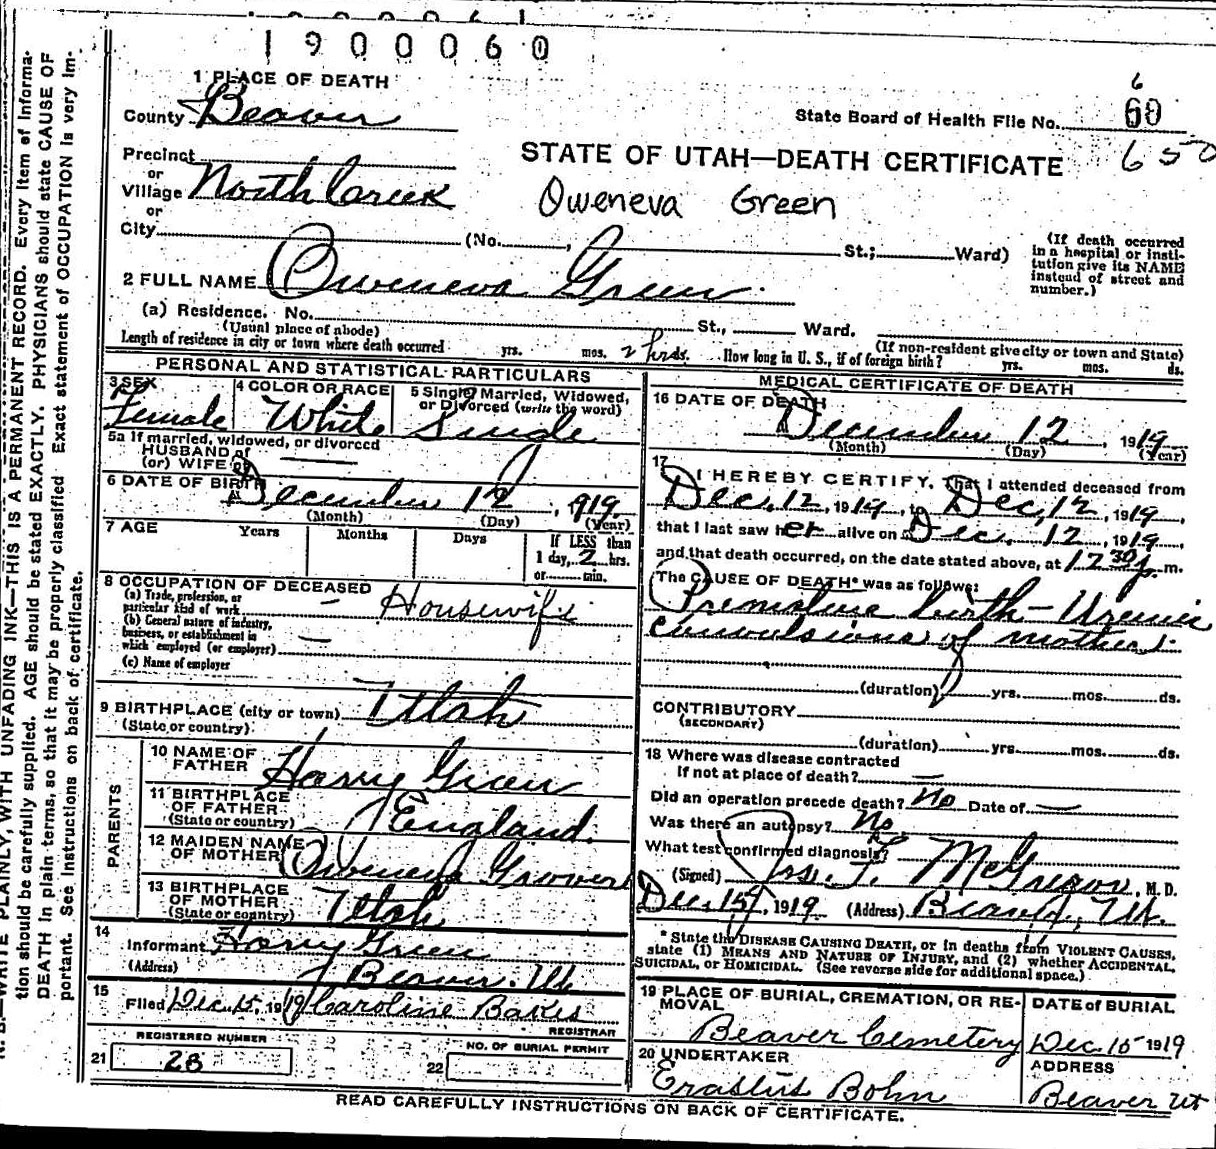 1900060
1 PLACE OF DEATH
County Beaver
State Board of Health File No. 60
6
650
Precinct
or
Village North Creek
or
City (No. , St.; Ward)
STATE OF UTAH—DEATH CERTIFICATE
Oweneva Green
(If death occurred
in a hospital or insti-
tution give its NAME
instead of street and
number.)
2 FULL NAME Oweneva Green
(a) Residence. No. St., Ward.
(Usual place of abode) (If non-resident give city or town and State)
Length of residence in city or town where death occurred yrs. mos. 2 hrs. ds. How long in U. S., if of foreign birth? yrs. mos. ds.
PERSONAL AND STATISTICAL PARTICULARS
3 SEX
Female
4 COLOR OR RACE
White
5 Single, Married, Widowed,
or Divorced (write the word)
Single
5a If married, widowed, or divorced
HUSBAND of
(or) WIFE of —
6 DATE OF BIRTH
December 12, 1919
(Month) (Day) (Year)
7 AGE Years Months Days If LESS than
1 day, 2 hrs.
or min.
8 OCCUPATION OF DECEASED
(a) Trade, profession, or
particular kind of work — Housewife
(b) General nature of industry,
business, or establishment in
which employed (or employer) —
(c) Name of employer
9 BIRTHPLACE (city or town) Utah
(State or country)
PARENTS
10 NAME OF
FATHER Harry Green
11 BIRTHPLACE
OF FATHER
(State or country) England.
12 MAIDEN NAME
OF MOTHER Oweneva Grover
13 BIRTHPLACE
OF MOTHER
(State or country) Utah
14
Informant Harry Green
(Address) Beaver. Ut
15
Filed Dec. 15, 1919 Caroline Bakes
REGISTRAR
REGISTERED NUMBER
21 28
NO. OF BURIAL PERMIT
22
MEDICAL CERTIFICATE OF DEATH
16 DATE OF DEATH
December 12, 1919
(Month) (Day) (Year)
17
I HEREBY CERTIFY, That I attended deceased from
Dec. 12, 1919, to Dec. 12, 1919,
that I last saw her alive on Dec. 12, 1919,
and that death occurred, on the date stated above, at 12 30 p. m.
The CAUSE OF DEATH* was as follows:
Premature birth — Uremic
convulsions of mother.
(duration) yrs. mos. ds.
CONTRIBUTORY
(SECONDARY)
(duration) yrs. mos. ds.
18 Where was disease contracted
If not at place of death? —
Did an operation precede death? No Date of —
Was there an autopsy? No
What test confirmed diagnosis?
(Signed) Jas. F. McGregor, M. D.
Dec. 15, 1919 (Address) Beaver, Ut.
* State the DISEASE CAUSING DEATH, or in deaths from VIOLENT CAUSES,
state (1) MEANS AND NATURE OF INJURY, and (2) whether ACCIDENTAL,
SUICIDAL, OR HOMICIDAL. (See reverse side for additional space.)
19 PLACE OF BURIAL, CREMATION, OR RE-
MOVAL
Beaver Cemetery
DATE of BURIAL
Dec. 15 1919
20 UNDERTAKER
Erastus Bohn
ADDRESS
Beaver Ut
READ CAREFULLY INSTRUCTIONS ON BACK OF CERTIFICATE.
N. B.—WRITE PLAINLY, WITH UNFADING INK—THIS IS A PERMANENT RECORD. Every item of informa-
tion should be carefully supplied. AGE should be stated EXACTLY. PHYSICIANS should state CAUSE OF
DEATH in plain terms, so that it may be properly classified. Exact statement of OCCUPATION is very im-
portant. See instructions on back of certificate.